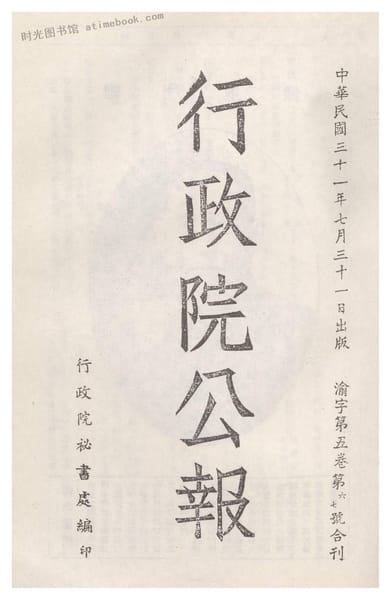 时光图书馆 atimebook.com
中華民國三十一年七月三十一日出版 渝字第五卷第六七號合刊
行政院公報
行政院祕書處編印